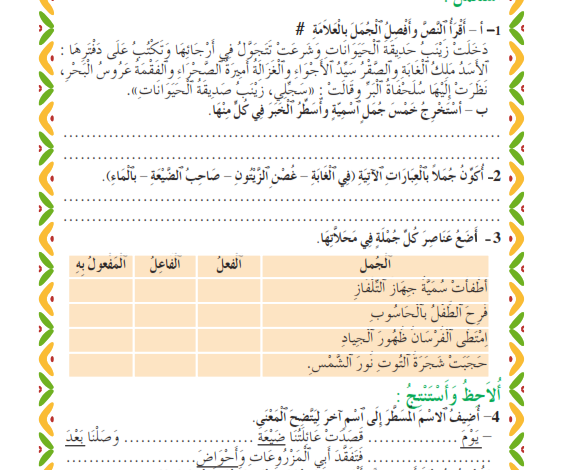 1– أ – أَقْرَأُ ٱلنَّصَّ وَأَفْصِلُ ٱلْجُمَلَ بِٱلْعَلَامَةِ #
دَخَلَتْ زَيْنَبُ حَدِيقَةَ ٱلْحَيَوَانَاتِ وَشَرَعَتْ تَتَجَوَّلُ فِي أَرْجَائِهَا وَتَكْتُبُ عَلَى دَفْتَرِهَا :
ٱلْأَسَدُ مَلِكُ ٱلْغَابَةِ وَٱلصَّقْرُ سَيِّدُ ٱلْأَجْوَاءِ وَٱلْغَزَالَةُ أَمِيرَةُ ٱلصَّحْرَاءِ وَٱلْفَقْمَةُ عَرُوسُ ٱلْبَحْرِ،
نَظَرَتْ إِلَيْهَا سُلَحْفَاةُ ٱلْبَرِّ وَقَالَتْ : «سَجِّلِي، زَيْنَبُ صَدِيقَةُ ٱلْحَيَوَانَاتِ».
ب – أَسْتَخْرِجُ خَمْسَ جُمَلٍ ٱسْمِيَّةٍ وَأُسَطِّرُ ٱلْخَبَرَ فِي كُلٍّ مِنْهَا.
2– أُكَوِّنُ جُمَلًا بِٱلْعِبَارَاتِ ٱلْآتِيَةِ (فِي ٱلْغَابَةِ – غُصْنِ ٱلزَّيْتُونِ – صَاحِبُ ٱلضَّيْعَةِ – بِٱلْمَاءِ).
3 – أَضَعُ عَنَاصِرَ كُلِّ جُمْلَةٍ فِي مَحَلَّاتِهَا.
ٱلْجُمل ٱلْفعلُ ٱلْفاعِلُ ٱلْمَفْعولُ بِهِ
أَطْفَأَتْ سُمَيَّةُ جِهَازَ ٱلتِّلْفَازِ
فَرِحَ ٱلطِّفْلُ بِٱلْحَاسُوبِ
اِمْتَطَى ٱلْفُرْسَانُ ظُهُورَ ٱلْجِيَادِ
حَجَبَتْ شَجَرَةُ ٱلتُّوتِ نُورَ ٱلشَّمْسِ.
أُلَاحِظُ وَأَسْتَنْتِجُ :
4– أُضِيفُ ٱلِاسْمَ ٱلْمُسَطَّرَ إِلَى ٱسْمٍ آخَرَ لِيَتَّضِحَ ٱلْمَعْنَى.
– يَوْمَ .................. قَصَدَتْ عَائِلَتُنَا ضَيْعَةَ .................. وَصَلْنَا بَعْدَ
.................. فَتَفَقَّدَ أَبِي ٱلْمَزْرُوعَاتِ وَأَحْوَاضَ ..................